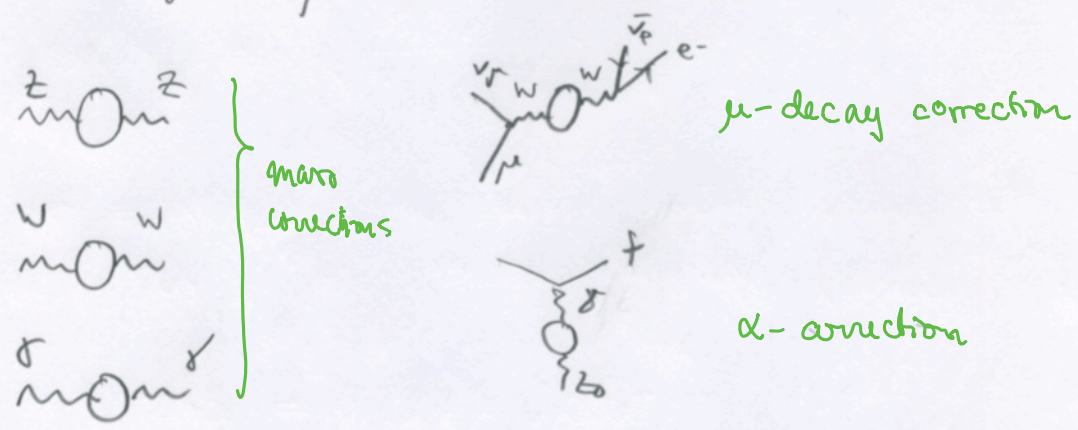 Z Z
W W
γ γ
mass
corrections
ν_μ W W ν̄_e e-
μ
μ-decay correction
f
γ
α-correction